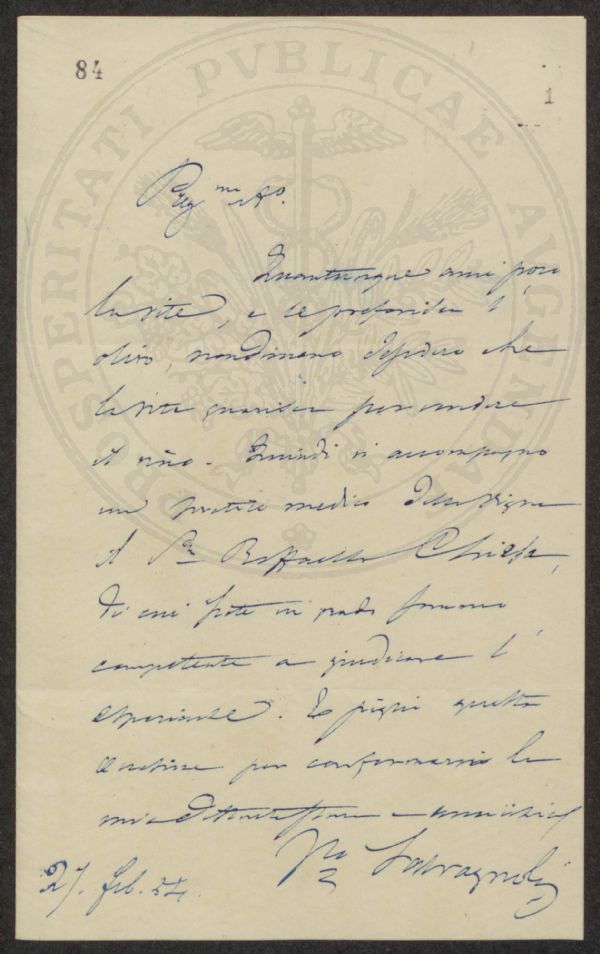 84
1
PROSPERITATI PVBLICAE AVGENDAE
Preg.mo A.o
Quantunque ami poco
la vite, e le preferisca l'
olivo, nondimeno desidero che
la vite guarisca per vendere
il vino. Quindi vi accompagno
un pratico medico della vigna
il Sr Raffaello Chiesa,
di cui siete in grado
competente a giudicare l'
esperienze. E piglio questa
occasione per confermarvi la
mia e amicizia
Vo Salvagnoli
27. feb. 54.